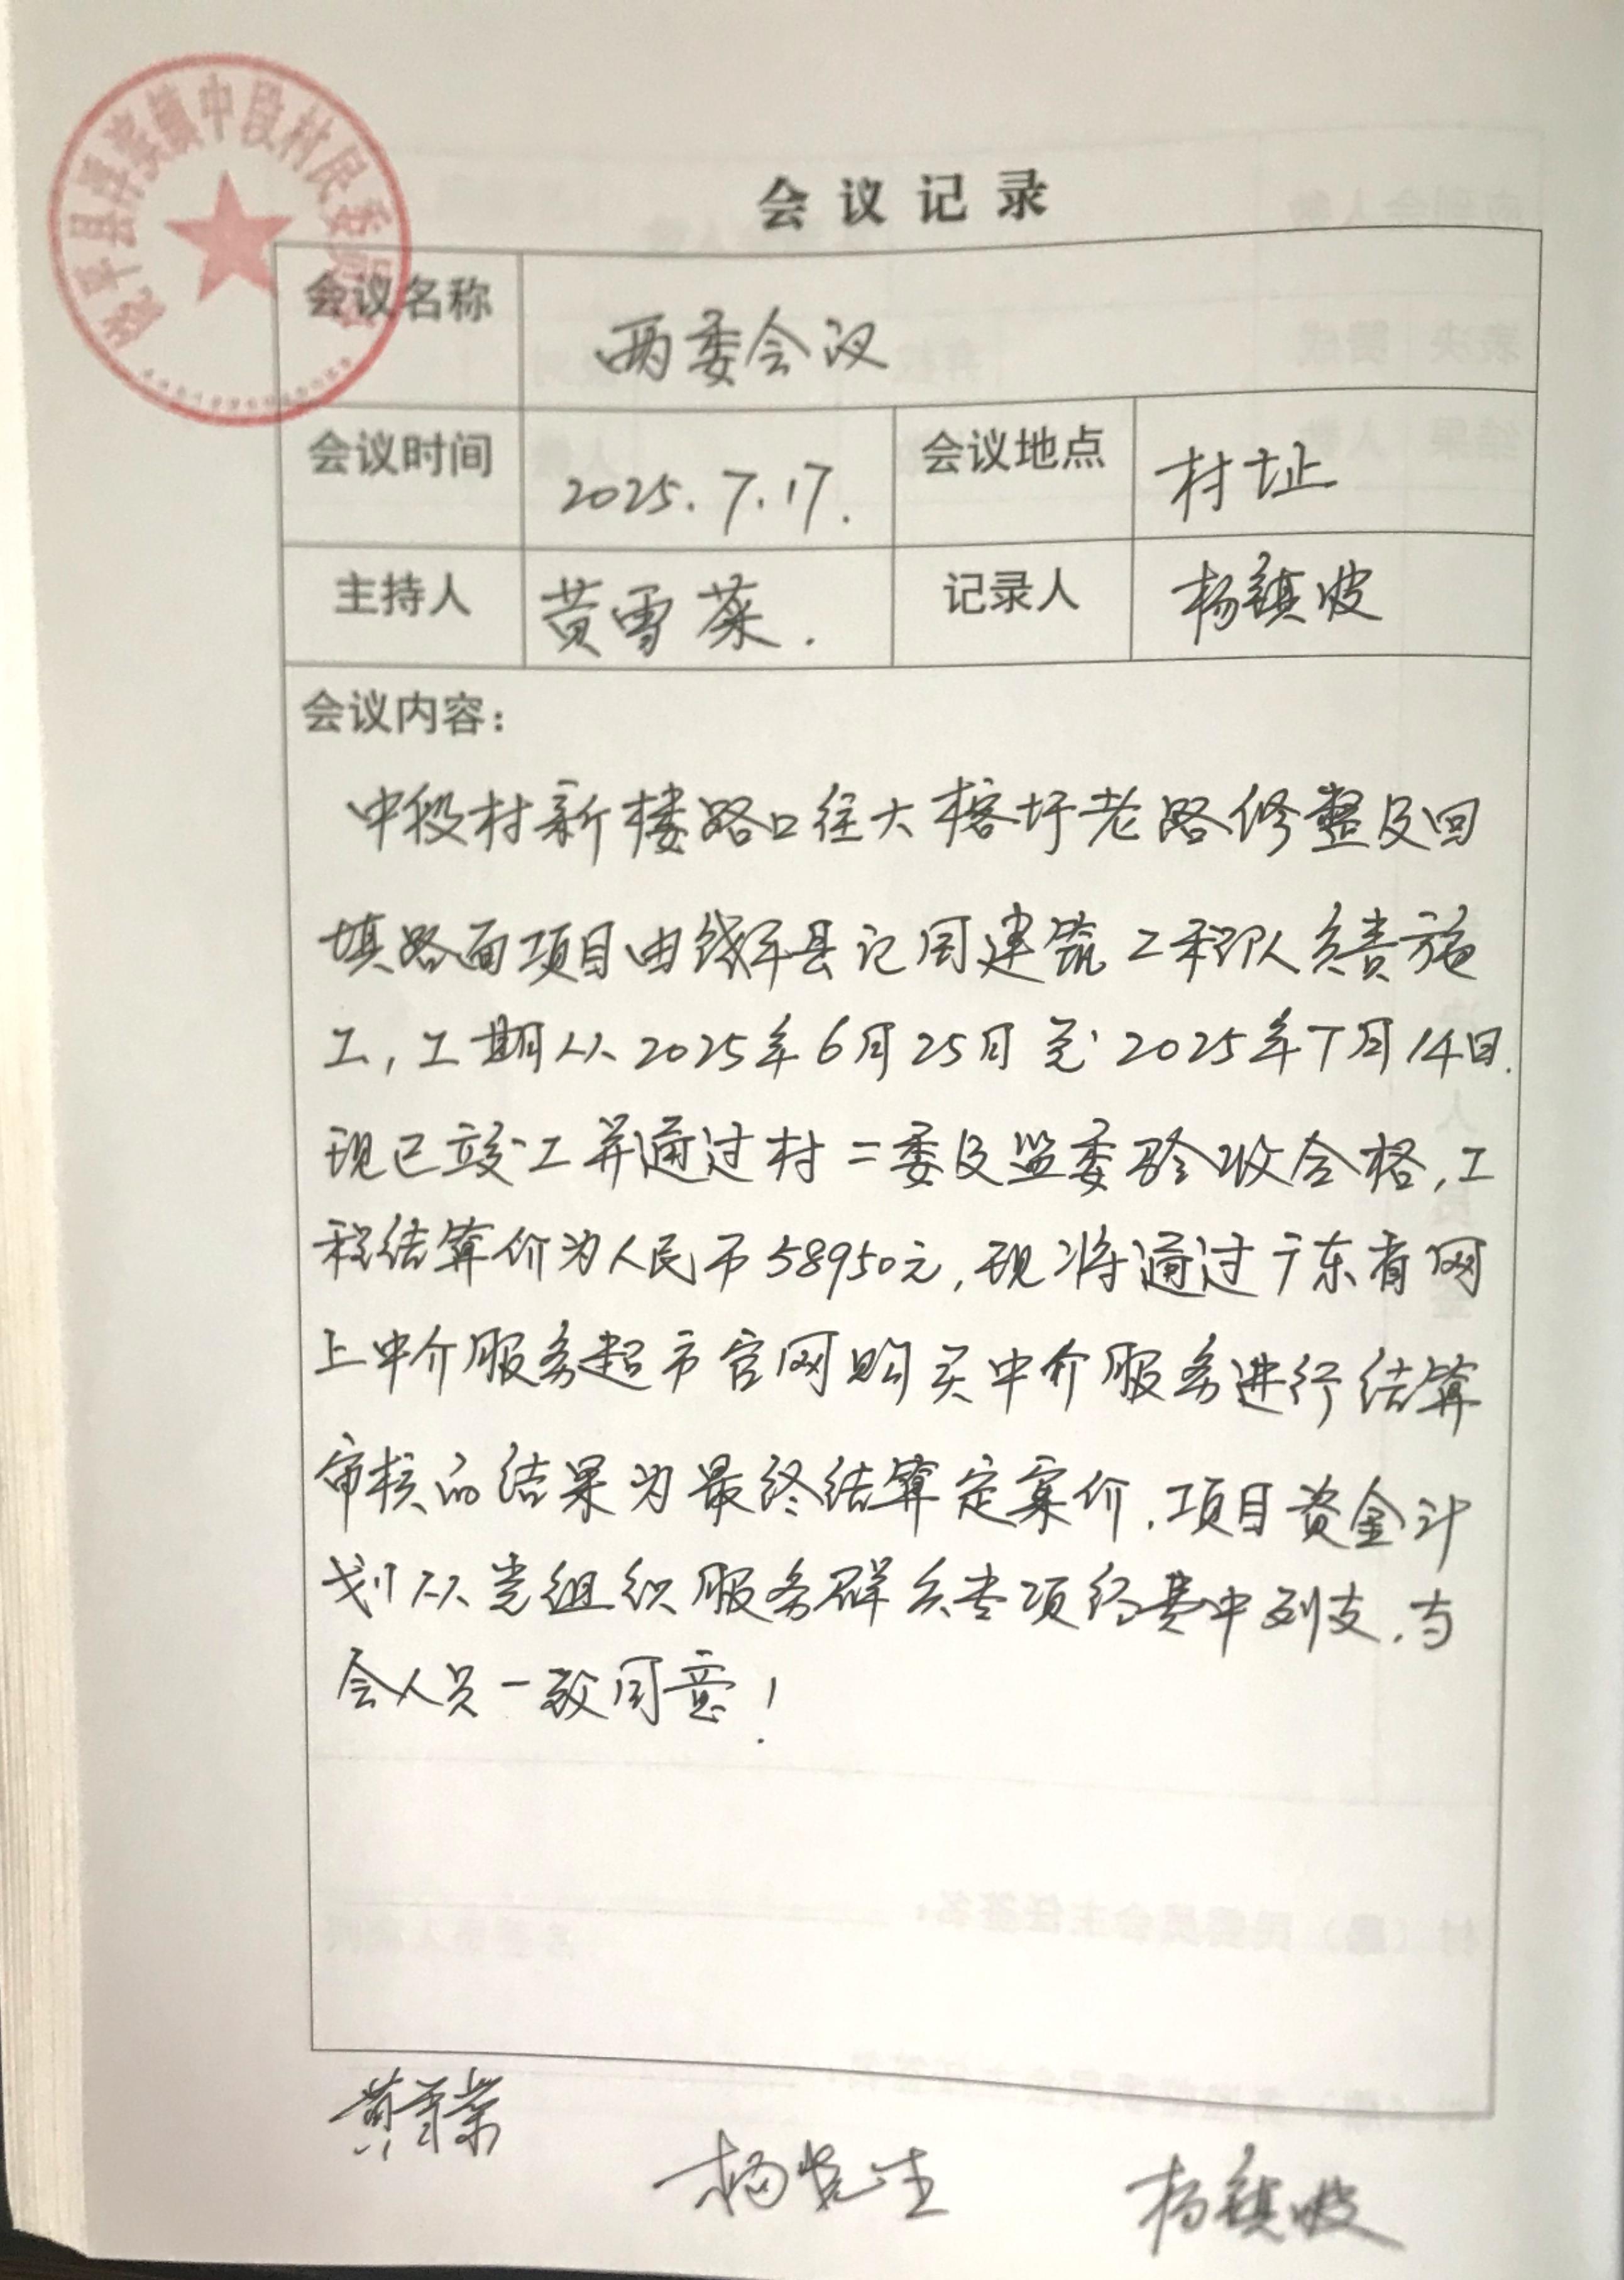 饶平县浮滨镇中段村民委员会
会议记录
会议名称
两委会议
会议时间
2025.7.17.
会议地点
村址
主持人
黄雪葉.
记录人
杨镇波
会议内容:
中段村新楼路口往大榕圩老路修整及回
填路面项目由饶平县记周建筑工程队负责施
工,工期从2025年6月25日至2025年7月14日.
现已竣工并通过村二委及监委验收合格,工
程结算价为人民币58950元,现将通过广东省网
上中介服务超市官网购买中介服务进行结算
审核的结果为最终结算定案价.项目资金计
划从党组织服务群众专项经费中列支.与
会人员一致同意!
黄雪葉
杨
生
杨镇波